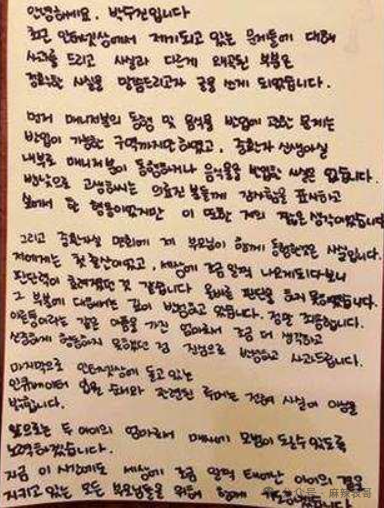 안녕하세요. 박수진입니다
최근 인터넷상에서 제기되고 있는 문제들에 대해
사과를 드리고 사실과 다르게 왜곡된 부분은
정확한 사실을 말씀드리고자 글을 쓰게 되었습니다.
먼저 매니저분의 동행 및 음식물 반입에 관한 문제는
반입이 가능한 구역까지만 하였고, 중환자 선생아실
내부로 매니저분이 동행하거나 음식물을 반입한 사실은 없습니다.
밤낮으로 고생하시는 의료진 분들께 감사함을 표시하고
싶어서 한 행동이었지만 이 또한 저의 짧은 생각이었습니다
그리고 중환자실 면회에 제 부모님이 함께 동행한것은 사실입니다.
저에게는 첫 출산이었고, 세상에 조금 일찍 나오게되다보니
판단력이 흐려졌던 것 같습니다. 올바른 판단을 하지 못하였습니다.
그 부분에 대해서는 깊이 반성하고 있습니다. 정말 죄송합니다.
이른둥이라는 같은 아픔을 가진 엄마로서 조금 더 생각하고
신중하게 행동하지 못했던 점 진심으로 반성하고 사과드립니다.
마지막으로 인터넷상에 돌고 있는
인큐베이터 입원 순서와 관련된 루머는 전혀 사실이 아님을
밝힙니다.
앞으로는 두 아이의 엄마로서 매사에 모범이 되도록 수있도록
노력하겠습니다.
지금 이 시간에도 세상에 조금 일찍 태어난 아이의 곁을
지키고 있는 모든 부모님들을 위해 함께
公众号 · 麻辣表哥